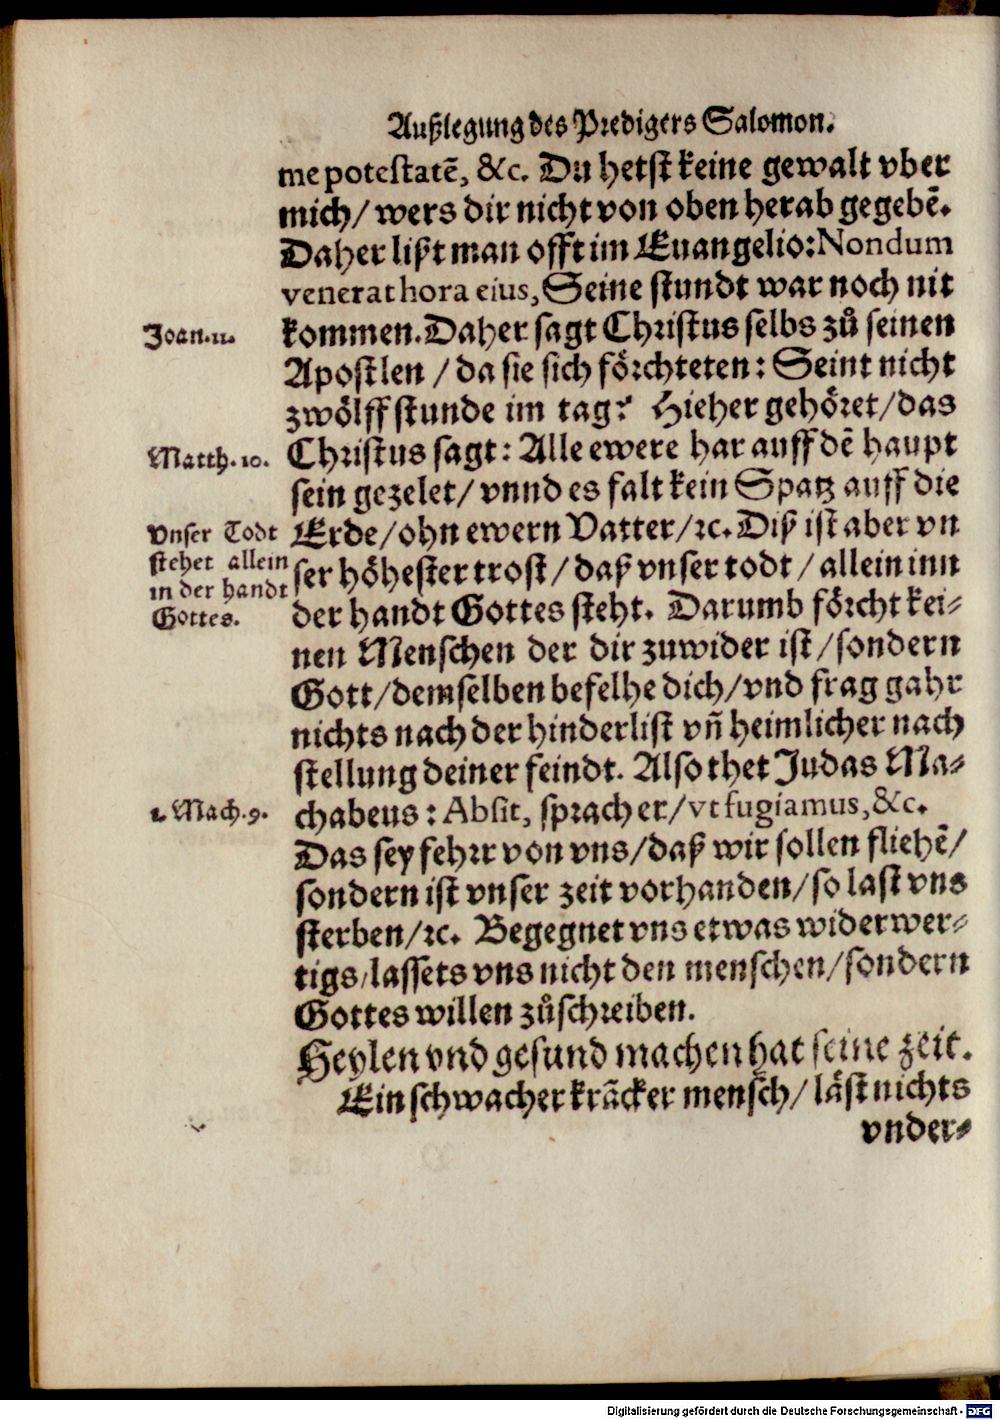 Außlegung des Predigers Salomon.
me potestatē, &c. Du hetst keine gewalt vber
mich/ wers dir nicht von oben herab gegebē.
Daher lißt man offt im Euangelio: Nondum
venerat hora eius, Seine stundt war noch nit
Joan. 11.
kommen. Daher sagt Christus selbs zů seinen
Apostlen / da sie sich förchteten: Seint nicht
zwölff stunde im tag? Hieher gehöret/ das
Matth. 10.
Christus sagt: Alle ewere har auff dē haupt
sein gezelet/ vnnd es falt kein Spatz auff die
Vnser Todt
stehet allein
in der handt
Gottes.
Erde/ ohn ewern Vatter/ ꝛc. Diß ist aber vn
ser höhester trost/ daß vnser todt / allein inn
der handt Gottes steht. Darumb förcht kei-
nen Menschen der dir zuwider ist/ sondern
Gott/ demselben befelhe dich/ vnd frag gahr
nichts nach der hinderlist vñ heimlicher nach
stellung deiner feindt. Also thet Judas Ma-
1. Mach. 9.
chabeus: Absit, sprach er/ vt fugiamus, &c.
Das sey fehrr von vns/ daß wir sollen fliehē/
sondern ist vnser zeit vorhanden/ so last vns
sterben/ ꝛc. Begegnet vns etwas widerwer-
tigs/ lassets vns nicht den menschen/ sondern
Gottes willen zůschreiben.
Heylen vnd gesund machen hat seine zeit.
Ein schwacher krācker mensch/ läst nichts
vnder-
Digitalisierung gefördert durch die Deutsche Forschungsgemeinschaft - DFG